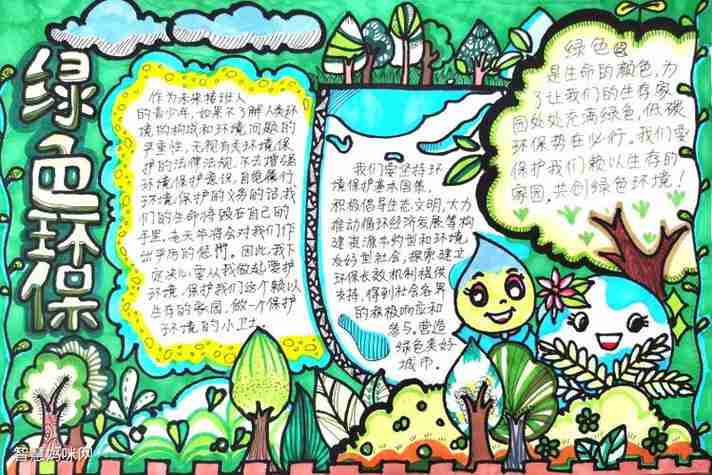 绿色环保
作为未来接班人
的青少年,如果不了解人类环
境的构成和环境问题的
严重性,无视有关环境保
护的法律法规,不去增强
环境保护意识,自觉履行
环境保护的义务的话,我
们的生命将毁在自己的
手里,老天爷将会对我们作
出严厉的惩罚。因此,我下
定决心要从我做起爱护
环境,保护我们这个赖以
生存的家园,做一个保护
环境的小卫士。
我们要坚持环
境保护基本国策,
积极倡导生态文明,大力
推动循环经济发展,着力构
建资源节约型和环境
友好型社会,探索建立
环保长效机制提供
支持,得到社会各界
的积极响应和
参与,营造
绿色美好
城市。
绿色
是生命的颜色,为
了让我们的生存家
园处处充满绿色,低碳
环保势在必行。我们要
保护我们赖以生存的
家园,共创绿色环境!
智慧妈咪网